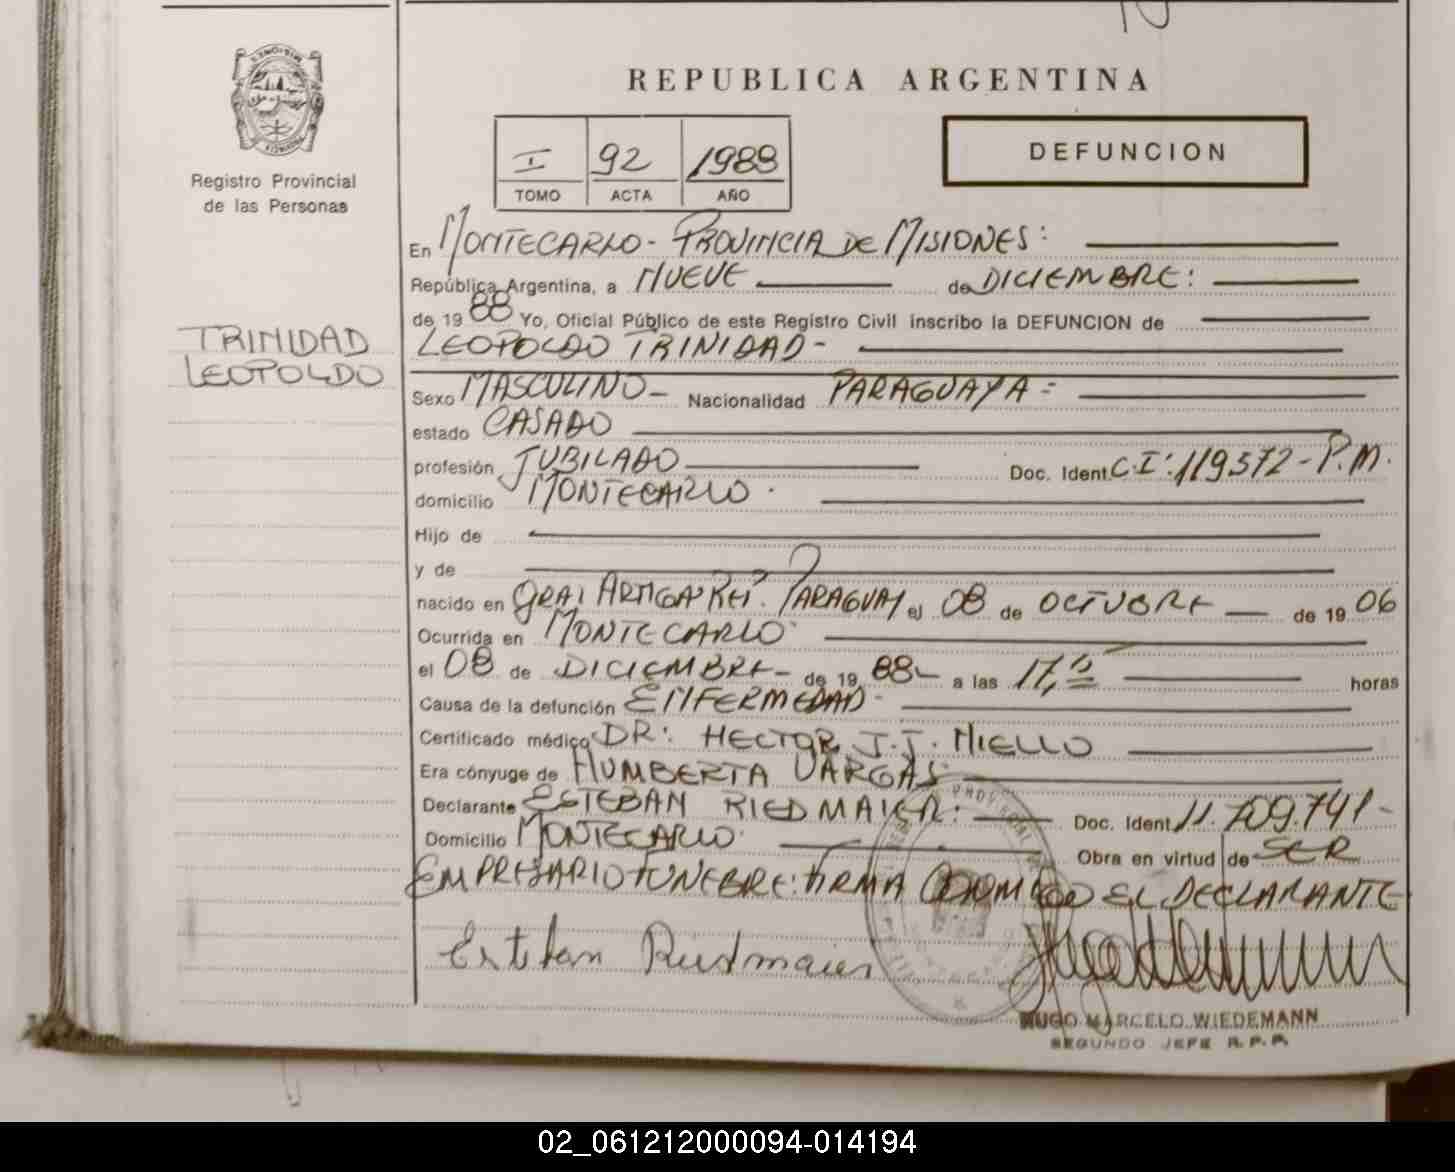 REPUBLICA ARGENTINA
Registro Provincial
de las Personas
I 92 1988
TOMO ACTA AÑO
DEFUNCION
TRINIDAD
LEOPOLDO
En MONTECARLO - PROVINCIA DE MISIONES:
República Argentina, a NUEVE de DICIEMBRE:
de 19 88 Yo, Oficial Público de este Registro Civil inscribo la DEFUNCION de
LEOPOLDO TRINIDAD -
Sexo MASCULINO - Nacionalidad PARAGUAYA =
estado CASADO
profesión JUBILADO Doc. Ident C.I: 119572 - P.M.
domicilio MONTECARLO.
Hijo de
y de
nacido en GRAL ARTIGA' PARAGUAY el 08 de OCTUBRE de 19 06
Ocurrida en MONTECARLO
el 08 de DICIEMBRE - de 19 88 - a las 17, horas
Causa de la defunción ENFERMEDAD -
Certificado médico DR: HECTOR J.J. NIELLO
Era cónyuge de HUMBERTA VARGAS
Declarante ESTEBAN RIEDMAIER: Doc. Ident 11.709.741 -
Domicilio MONTECARLO Obra en virtud de SER
EMPRESARIO FUNEBRE: FIRMA EL DECLARANTE
Esteban Riedmaier
HUGO MARCELO WIEDEMANN
SEGUNDO JEFE R.P.P.
02_061212000094-014194